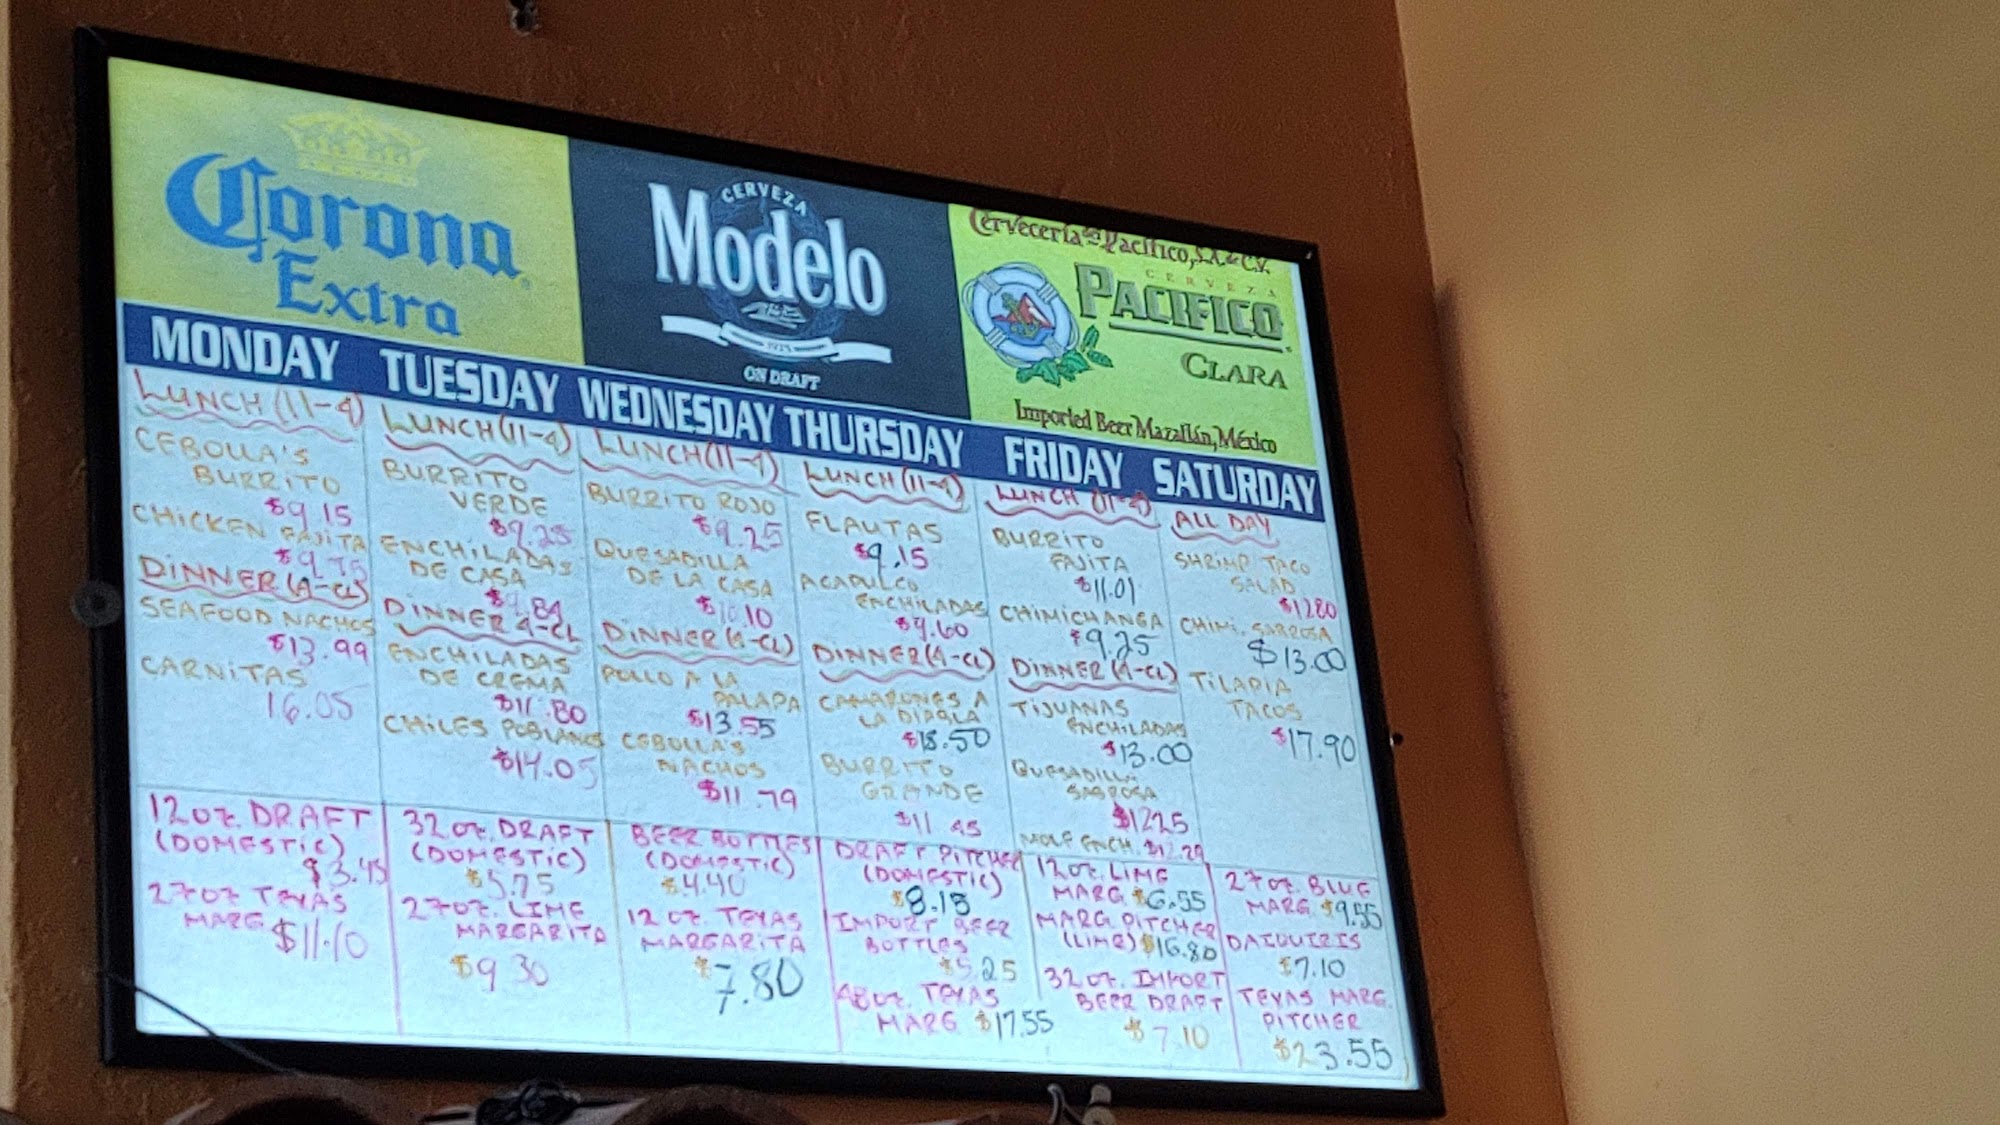 Corona
Extra
CERVEZA
Modelo
1925
ON DRAFT
Cervecería del Pacífico, S.A. de C.V.
CERVEZA
PACIFICO
CLARA
Imported Beer Mazatlán, México
MONDAY
LUNCH (11-4)
CEBOLLA'S
BURRITO
$9.15
CHICKEN FAJITA
$9.75
DINNER (4-CL)
SEAFOOD NACHOS
$13.99
CARNITAS
16.05
12 oz. DRAFT
(DOMESTIC)
$3.45
27 oz TEXAS
MARG $11.10
TUESDAY
LUNCH (11-4)
BURRITO
VERDE
$9.25
ENCHILADAS
DE CASA
$9.84
DINNER 4-CL
ENCHILADAS
DE CREMA
$11.80
CHILES POBLANOS
$14.05
32 oz. DRAFT
(DOMESTIC)
$5.75
27 oz. LIME
MARGARITA
$9.30
WEDNESDAY
LUNCH (11-4)
BURRITO ROJO
$9.25
QUESADILLA
DE LA CASA
$10.10
DINNER (4-CL)
POLLO A LA
PALAPA
$13.55
CEBOLLA'S
NACHOS
$11.79
BEER BOTTLES
(DOMESTIC)
$4.40
12 oz. TEXAS
MARGARITA
$7.80
THURSDAY
LUNCH (11-4)
FLAUTAS
$9.15
ACAPULCO
ENCHILADAS
$9.60
DINNER (4-CL)
CAMARONES A
LA DIABLA
$18.50
BURRITO
GRANDE
$11.45
DRAFT PITCHER
(DOMESTIC)
$8.15
IMPORT BEER
BOTTLES
$5.25
48 oz. TEXAS
MARG $17.55
FRIDAY
LUNCH (11-4)
BURRITO
FAJITA
$11.01
CHIMICHANGA
$9.25
DINNER (4-CL)
TIJUANAS
ENCHILADAS
$13.00
QUESADILLA
SABROSA
$12.25
MOLE ENCH. $12.29
12 oz. LIME
MARG $6.55
MARG PITCHER
(LIME) $16.80
32 oz. IMPORT
BEER DRAFT
$7.10
SATURDAY
ALL DAY
SHRIMP TACO
SALAD
$12.80
CHIMI. SABROSA
$13.00
TILAPIA
TACOS
$17.90
27 oz. BLUE
MARG $9.55
DAIQUIRIS
$7.10
TEXAS MARG.
PITCHER
$23.55